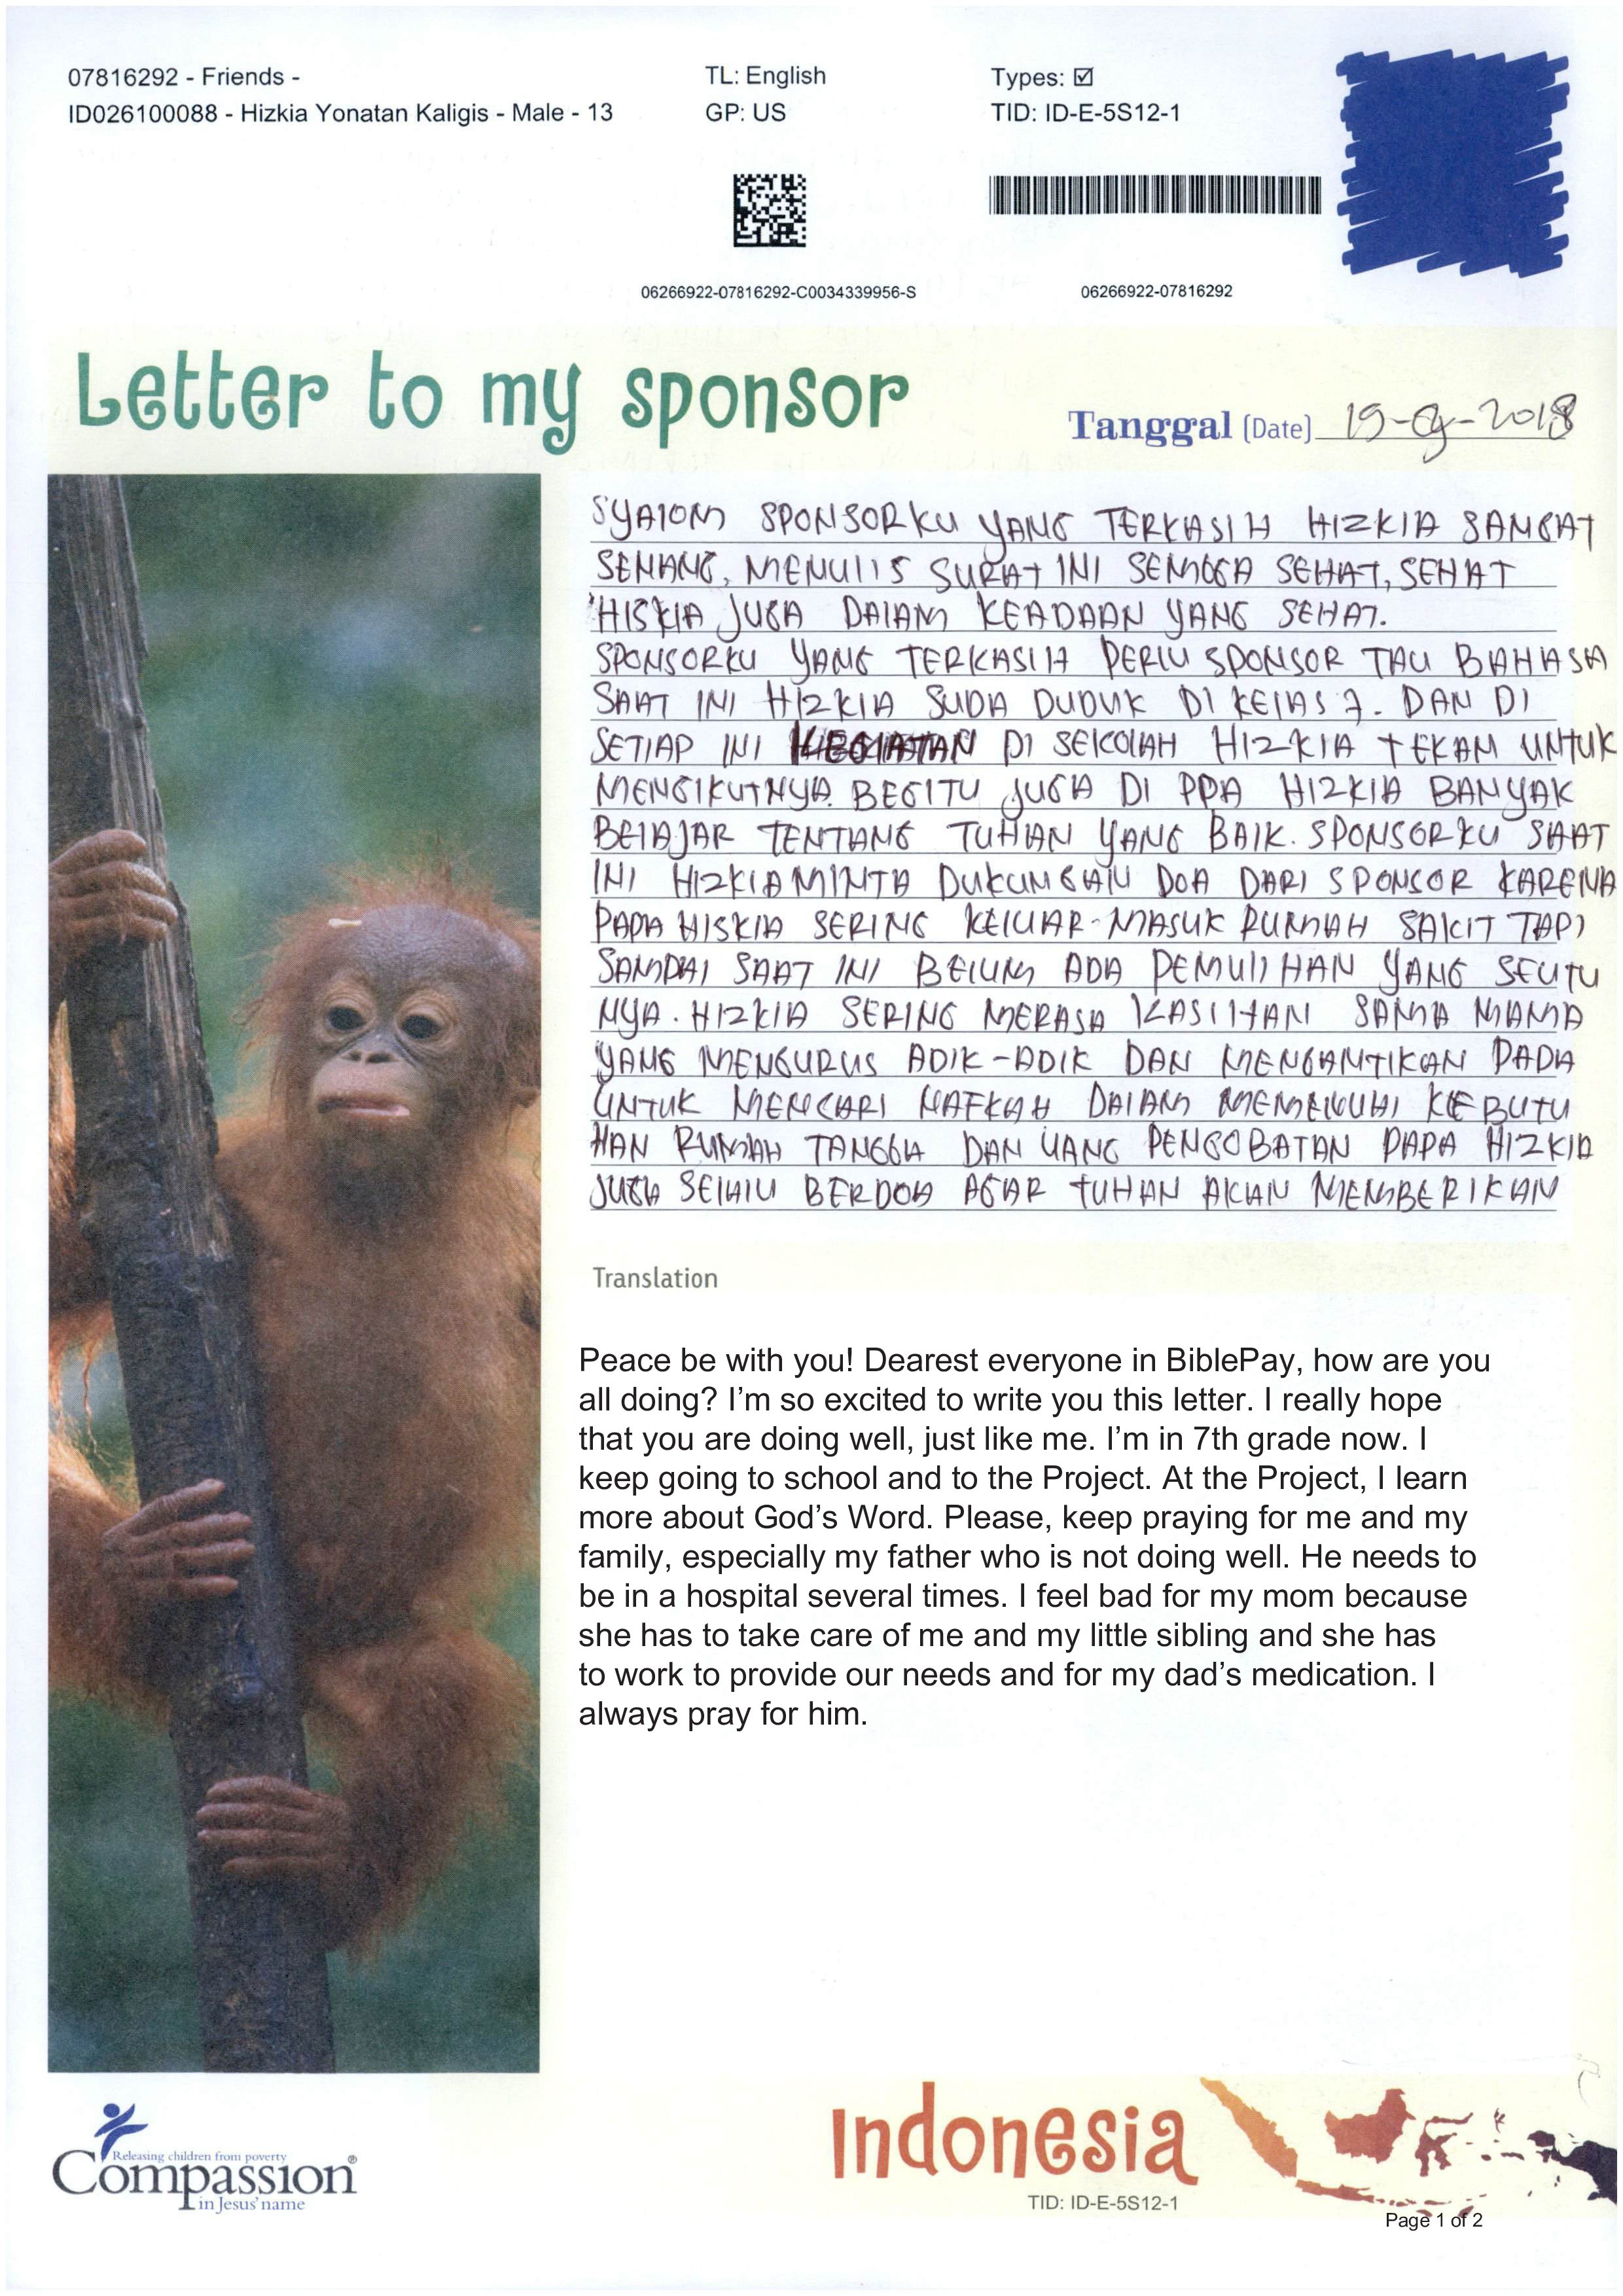 07816292 - Friends -
ID026100088 - Hizkia Yonatan Kaligis - Male - 13
TL: English
GP: US
Types: ☑
TID: ID-E-5S12-1
06266922-07816292-C0034339956-S
06266922-07816292
Letter to my sponsor
Tanggal (Date) 19-09-2018
SYALOM SPONSORKU YANG TERKASIH HIZKIA SANGAT
SENANG, MENULIS SURAT INI SEMOGA SEHAT, SEHAT
HISKIA JUGA DALAM KEADAAN YANG SEHAT.
SPONSORKU YANG TERKASIH PERLU SPONSOR TAU BAHASA
SAAT INI HIZKIA SUDA DUDUK DI KELAS 7. DAN DI
SETIAP INI KEGIATAN DI SEKOLAH HIZKIA TEKAN UNTUK
MENGIKUTNYA. BEGITU JUGA DI PPA HIZKIA BANYAK
BELAJAR TENTANG TUHAN YANG BAIK. SPONSORKU SAAT
INI HIZKIA MINTA DUKUNGAN DOA DARI SPONSOR KARENA
PAPA HISKIA SERING KELUAR-MASUK RUMAH SAKIT TAPI
SAMPAI SAAT INI BELUM ADA PEMULIHAN YANG SEUTU
NYA. HIZKIA SERING MERASA KASIHAN SAMA MAMA
YANG MENGURUS ADIK-ADIK DAN MENGANTIKAN PAPA
UNTUK MENCARI NAFKAH DALAM MEMENUHI KEBUTU
HAN RUMAH TANGGA DAN UANG PENGOBATAN PAPA HIZKIA
JUGA SELALU BERDOA AGAR TUHAN AKAN MEMBERIKAN
Translation
Peace be with you! Dearest everyone in BiblePay, how are you
all doing? I'm so excited to write you this letter. I really hope
that you are doing well, just like me. I'm in 7th grade now. I
keep going to school and to the Project. At the Project, I learn
more about God's Word. Please, keep praying for me and my
family, especially my father who is not doing well. He needs to
be in a hospital several times. I feel bad for my mom because
she has to take care of me and my little sibling and she has
to work to provide our needs and for my dad's medication. I
always pray for him.
Releasing children from poverty
Compassion®
in Jesus' name
Indonesia
TID: ID-E-5S12-1
Page 1 of 2